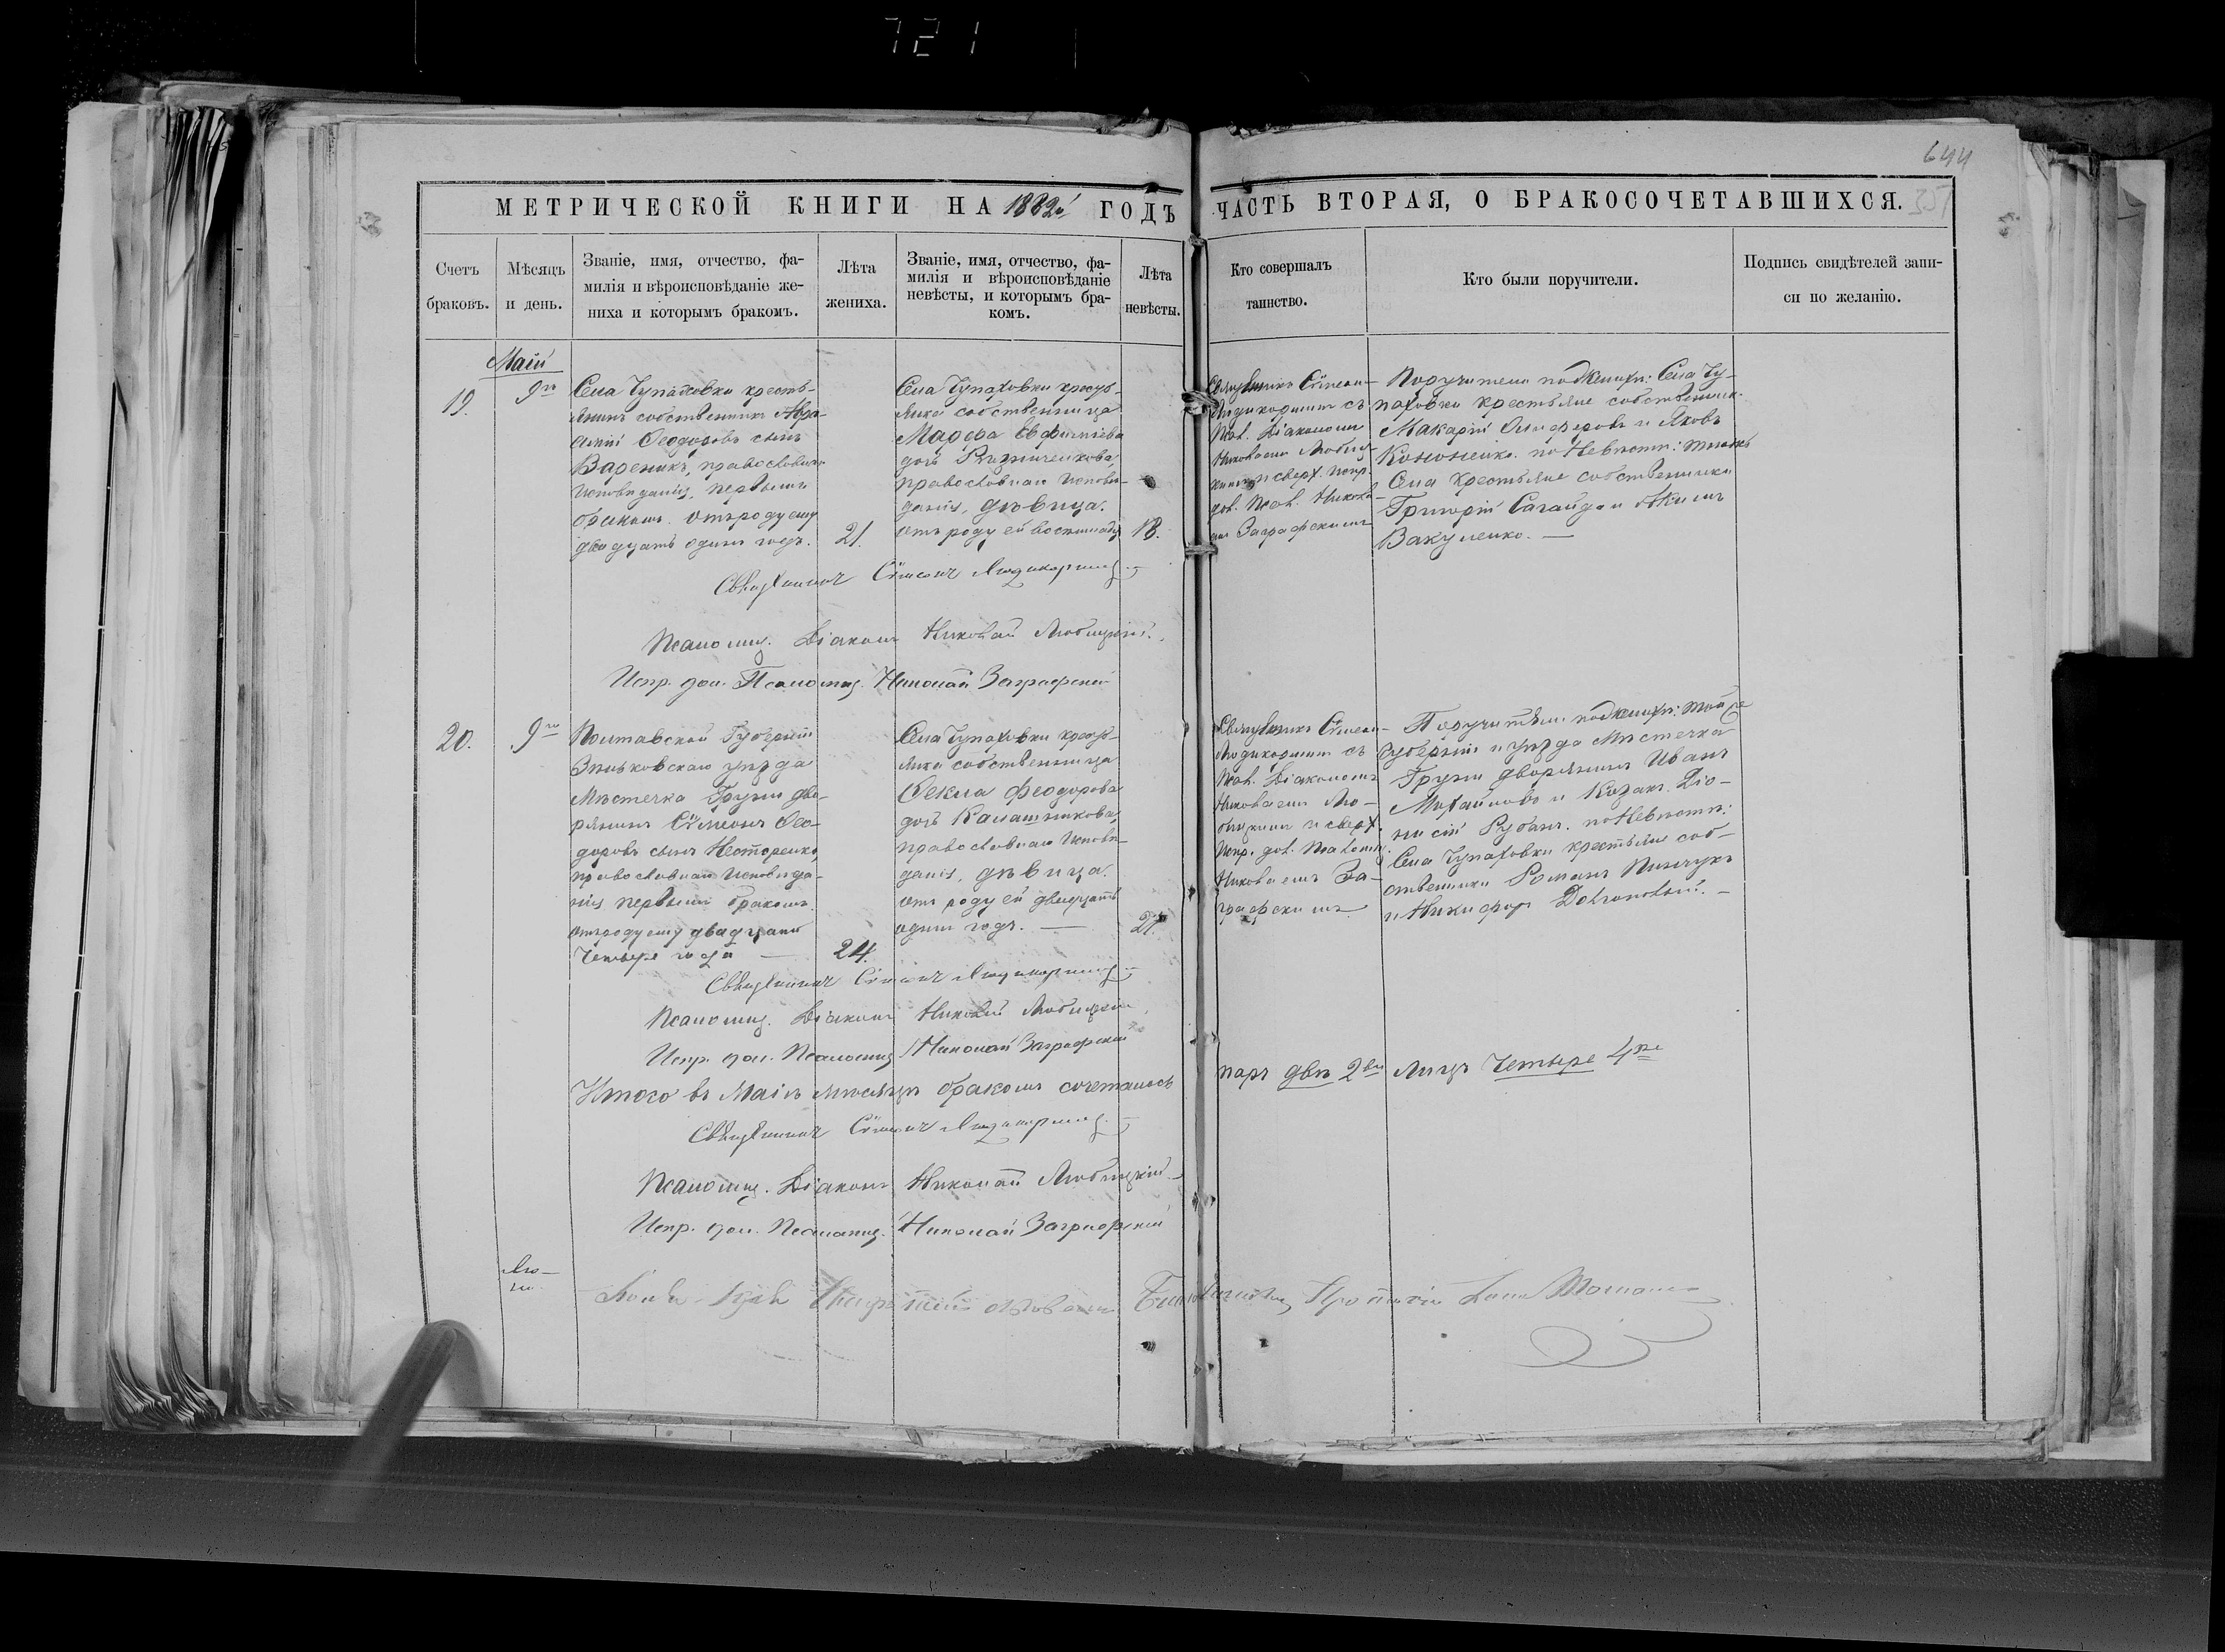 721
644
351
МЕТРИЧЕСКОЙ КНИГИ НА 1882й ГОДЪ
ЧАСТЬ ВТОРАЯ, О БРАКОСОЧЕТАВШИХСЯ.
Счетъ
браковъ.
Мѣсяцъ
и день.
Званіе, имя, отчество, фа-
милія и вѣроисповѣданіе же-
ниха и которымъ бракомъ.
Лѣта
жениха.
Званіе, имя, отчество, фа-
милія и вѣроисповѣданіе
невѣсты, и которымъ бра-
комъ.
Лѣта
невѣсты.
Кто совершалъ
таинство.
Кто были поручители.
Подпись свидѣтелей запи-
си по желанію.
Маій
19.
9го
Села Чупаховки кресть-
янинъ собственникъ Авра-
амій Ѳеодоровъ сынъ
Вареникъ, православнаго
исповѣданія, первымъ
бракомъ. отъ роду ему
двадцать одинъ годъ.
21.
Села Чупаховки кресть-
янка собственница
Марѳа Евфиміева
дочь Рѣзниченкова,
православнаго исповѣ-
данія, дѣвица.
отъ роду ей восемнадц
18.
Священникъ Сѵмеон
Людикорминъ съ
Псал. Діакономъ
Николаемъ Любиц-
кимъ и сверх. испр.
дол. Псал. Никола-
емъ Заграфскимъ
Поручители по женихѣ: Села Чу-
паховки крестьяне собственник.
Макарій Олиферовъ и Яковъ
Кононенко. по невѣстѣ: тогожъ
Села крестьяне собственники
Григорій Сагайда и Акимъ
Вакуленко. —
Священникъ Сѵмеонъ Людикорминъ
Псаломщ. Діаконъ Николай Любицкій.
Испр. дол. Псаломщ. Николай Заграфскій
20.
9го
Полтавской Губерніи
Зѣньковскаго уѣзда
Мѣстечка Груни дво-
рянинъ Сѵмеонъ Ѳео-
доровъ сынъ Нестеренко,
православнаго исповѣда-
нія первымъ бракомъ.
отъ роду ему двадцать
четыре года —
24.
Села Чупаховки кресть-
янка собственница
Ѳекла Ѳеодорова
дочь Калашникова,
православнаго исповѣ-
данія, дѣвица.
отъ роду ей двадцать
одинъ годъ. —
21.
Священникъ Сѵмеон
Людикорминъ съ
Псал. Діакономъ
Николаемъ Лю-
бицкимъ и сверх.
Испр. дол. Псаломщ.
Николаемъ За-
графскимъ
Поручители по женихѣ: той же
Губерніи и уѣзда Мѣстечка
Груни дворянинъ Иванъ
Михайловъ и Козакъ Діо-
нисій Рубанъ. по невѣстѣ:
Села Чупаховки крестьяне соб-
ственники Романъ Пинчукъ
и Никифоръ
Священникъ Сѵмеонъ Людикорминъ
Псаломщ. Діаконъ Николай Любицкій
Испр. дол. Псаломщ. Николай Заграфскій
Итого въ Маіѣ мѣсяцѣ бракомъ сочеталось
паръ двѣ 2вѣ лицъ четыре 4ре
Священникъ Сѵмеонъ Людикорминъ
Псаломщ. Діаконъ Николай Любицкій
Испр. дол. Псаломщ. Николай Заграфскій